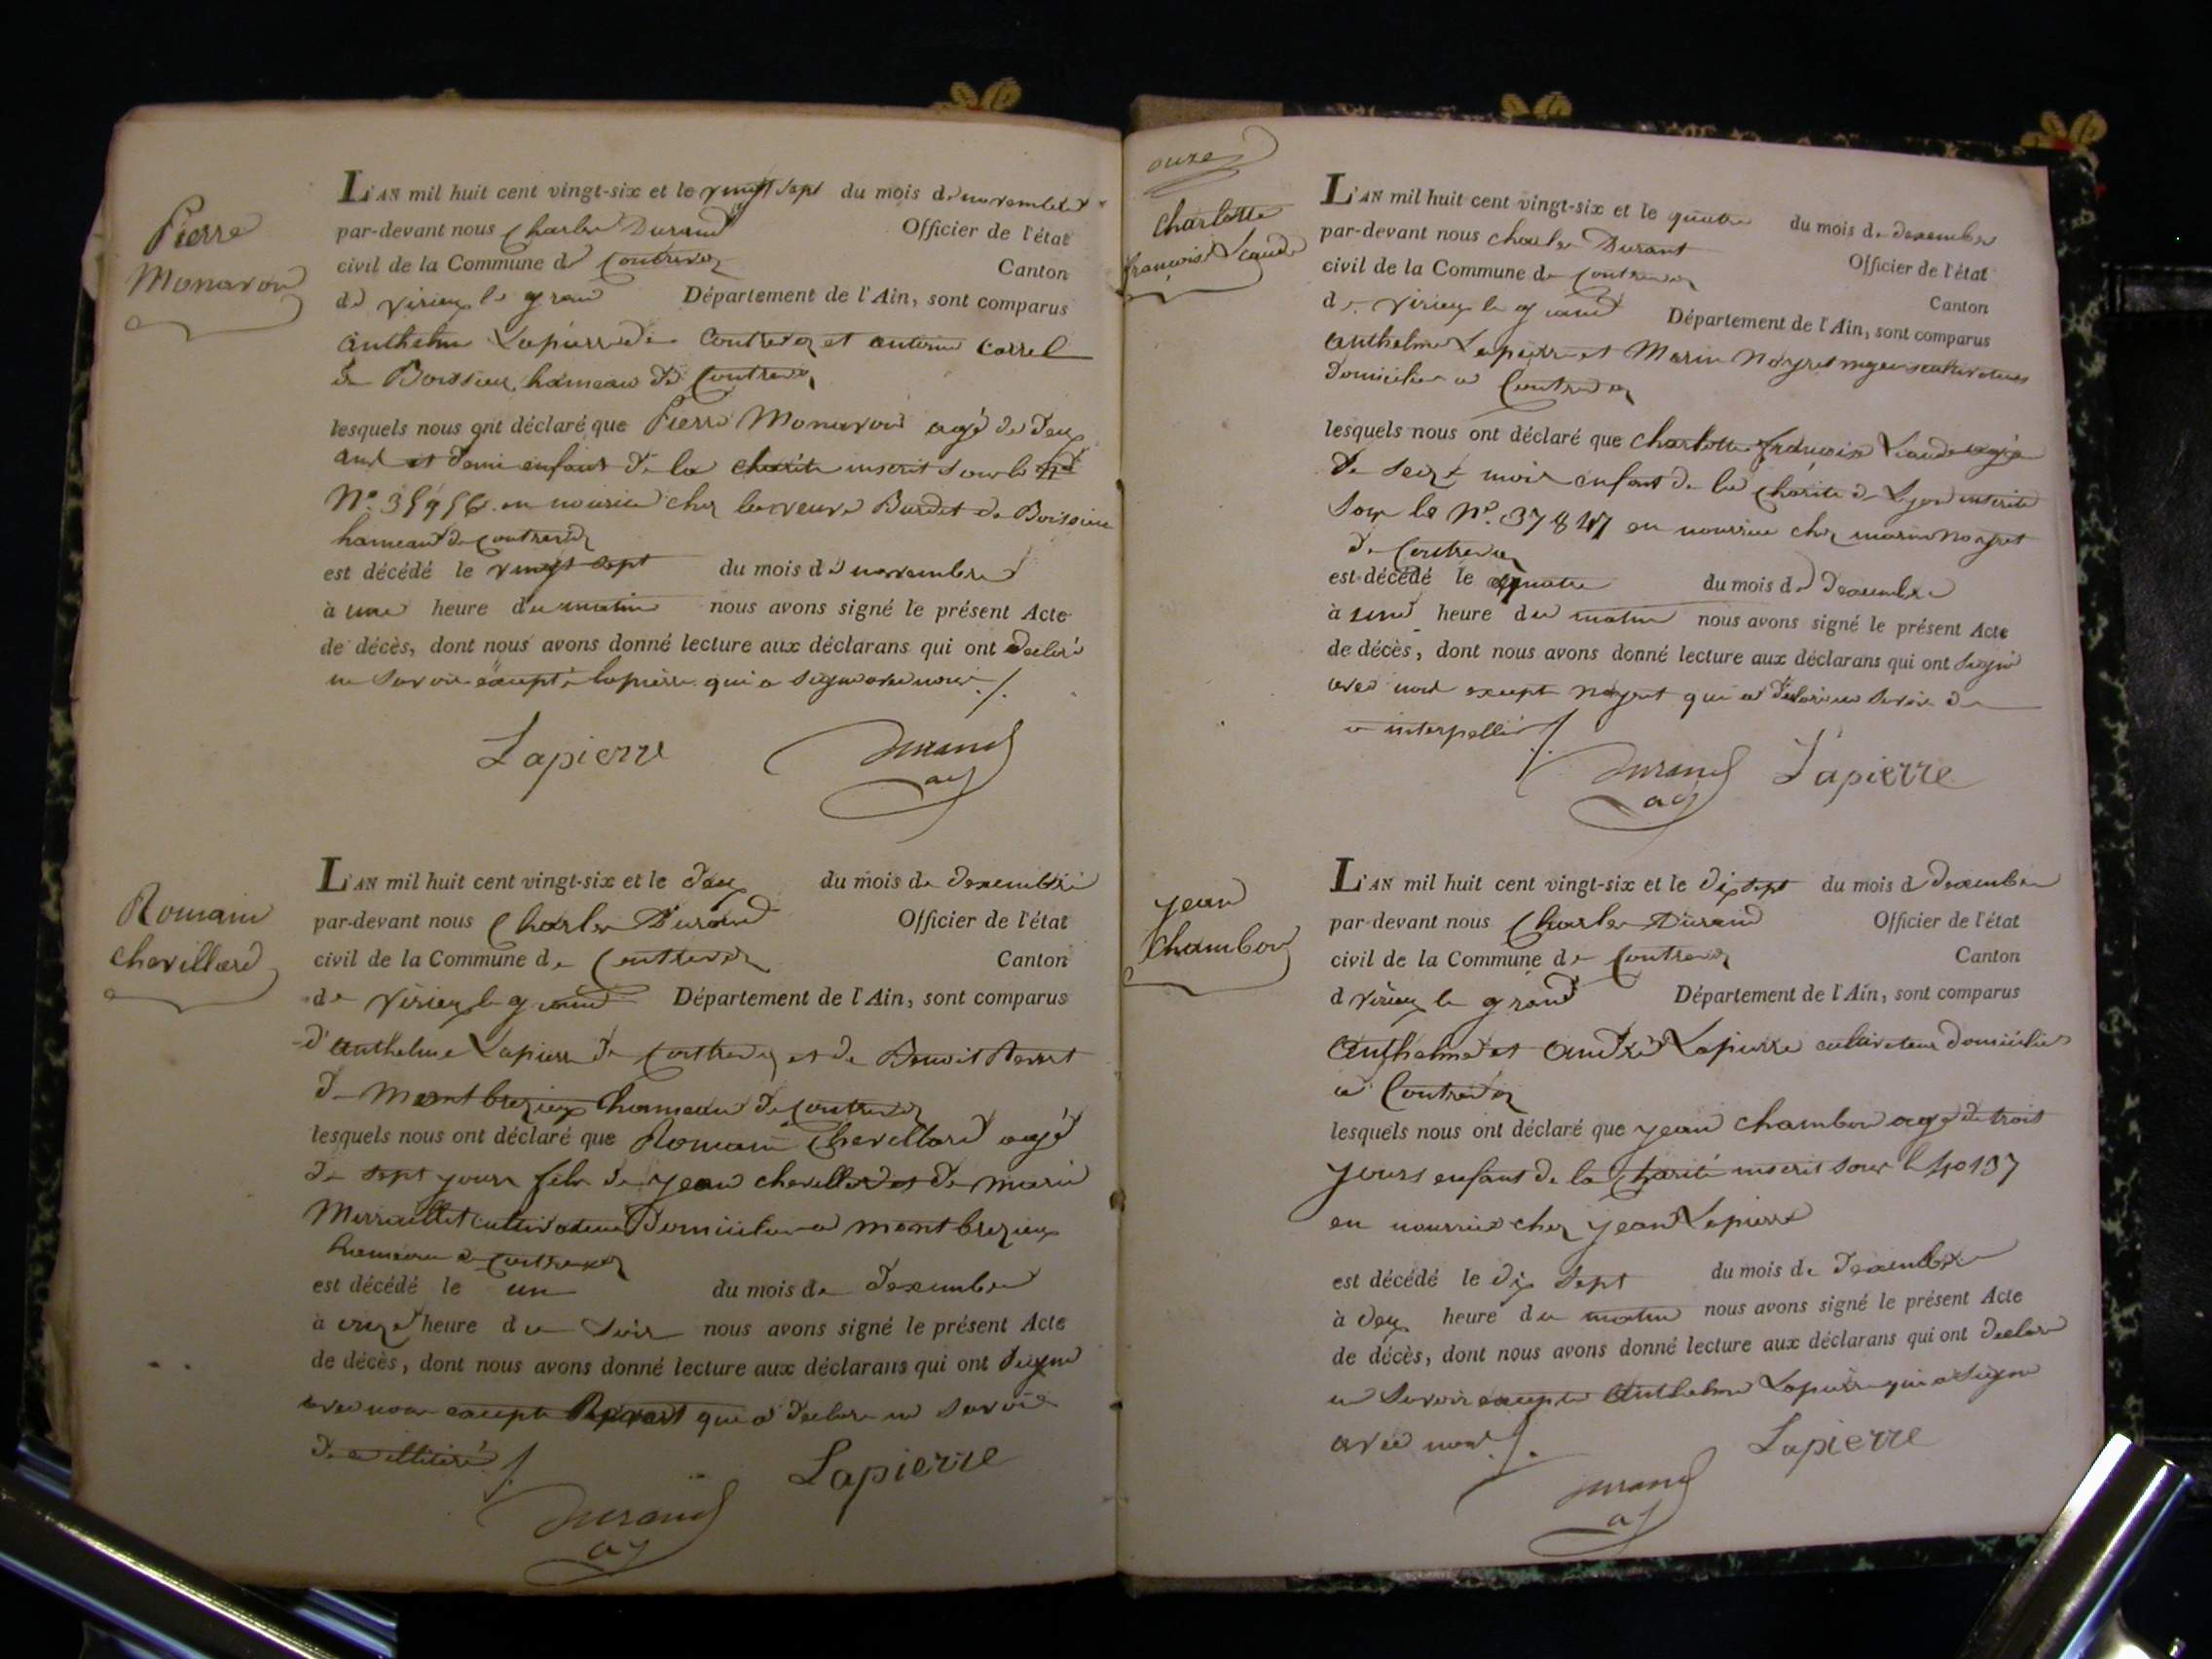 Pierre
Monavon
L'AN mil huit cent vingt-six et le vingt sept du mois de novembre
par-devant nous Charles Durand Officier de l'état
civil de la Commune de Contrevoz Canton
de virieu le grand Département de l'Ain, sont comparus
anthelme Lapierre de Contrevoz et antoine Carrel
de Boissieu hameau de Contrevoz
lesquels nous ont déclaré que Pierre Monavon agé de deux
ans et demi enfant de la charité inscrit sous le
N°. 35956 en nourice chez la veuve Burdet de Boissieu
hameau de Contrevoz
est décédé le vingt sept du mois de novembre
à une heure du matin nous avons signé le présent Acte
de décès, dont nous avons donné lecture aux déclarans qui ont déclaré
ne savoir excepté lapierre qui a signé avec nous ./.
Lapierre Durand
aj
Romain
chevillard
L'AN mil huit cent vingt-six et le deux du mois de dexembre
par-devant nous Charles Durand Officier de l'état
civil de la Commune de Contrevoz Canton
de virieu le grand Département de l'Ain, sont comparus
d'anthelme Lapierre de Contrevoz et de Benoit
de montbrezieux hameau de Contrevoz
lesquels nous ont déclaré que Romain Chevillard agé
de sept jours fils de jean chevillard et de marie
cultivateurs Domiciliés a montbrezieux
hameau de Contrevoz
est décédé le un du mois de dexembre
à onze heure du soir nous avons signé le présent Acte
de décès, dont nous avons donné lecture aux déclarans qui ont signé
avec nous excepté qui a declaré ne savoir
de ce
Lapierre
Durand
aj
onze
Charlotte
françoise
L'AN mil huit cent vingt-six et le quatre du mois de dexembre
par-devant nous charles Durant Officier de l'état
civil de la Commune de Contrevoz Canton
de virieu le grand Département de l'Ain, sont comparus
anthelme Lapierre et Marin cultivateurs
domiciliés a Contrevoz
lesquels nous ont déclaré que Charlotte françoise agée
de seize mois enfant de la charité de Lyon inscrite
sous le N°. 37847 en nourrice chez marin
de Contrevoz
est décédé le quatre du mois de dexembre
à une heure du matin nous avons signé le présent Acte
de décès, dont nous avons donné lecture aux déclarans qui ont signé
avec nous excepté qui a déclaré ne savoir de
ce interpellé ./.
Durand Lapierre
aj
jean
Chambon
L'AN mil huit cent vingt-six et le dix sept du mois d dexembre
par-devant nous Charles Durand Officier de l'état
civil de la Commune de Contrevoz Canton
d virieu le grand Département de l'Ain, sont comparus
Anthelme et André Lapierre cultivateurs domiciliés
a Contrevoz
lesquels nous ont déclaré que jean chambon agé de trois
jours enfant de la Charité inscrit sous le 40137
en nourrice chez jean Lapierre
est décédé le dix sept du mois de dexembre
à deux heure du matin nous avons signé le présent Acte
de décès, dont nous avons donné lecture aux déclarans qui ont declaré
ne savoir excepté Anthelme Lapierre qui a signé
avec nous ./.
Lapierre
Durand
aj